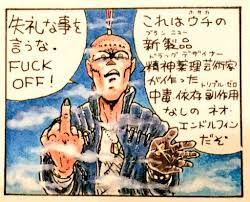 失礼な事を
言うな.
FUCK
OFF!
これはウチの
ブランニュー
新製品
ドラッグデザイナー
精神整理芸術家
が作った
トリプルゼロ
中毒・依存・副作用
なしのネオ・
エンドルフィン
だぞ.